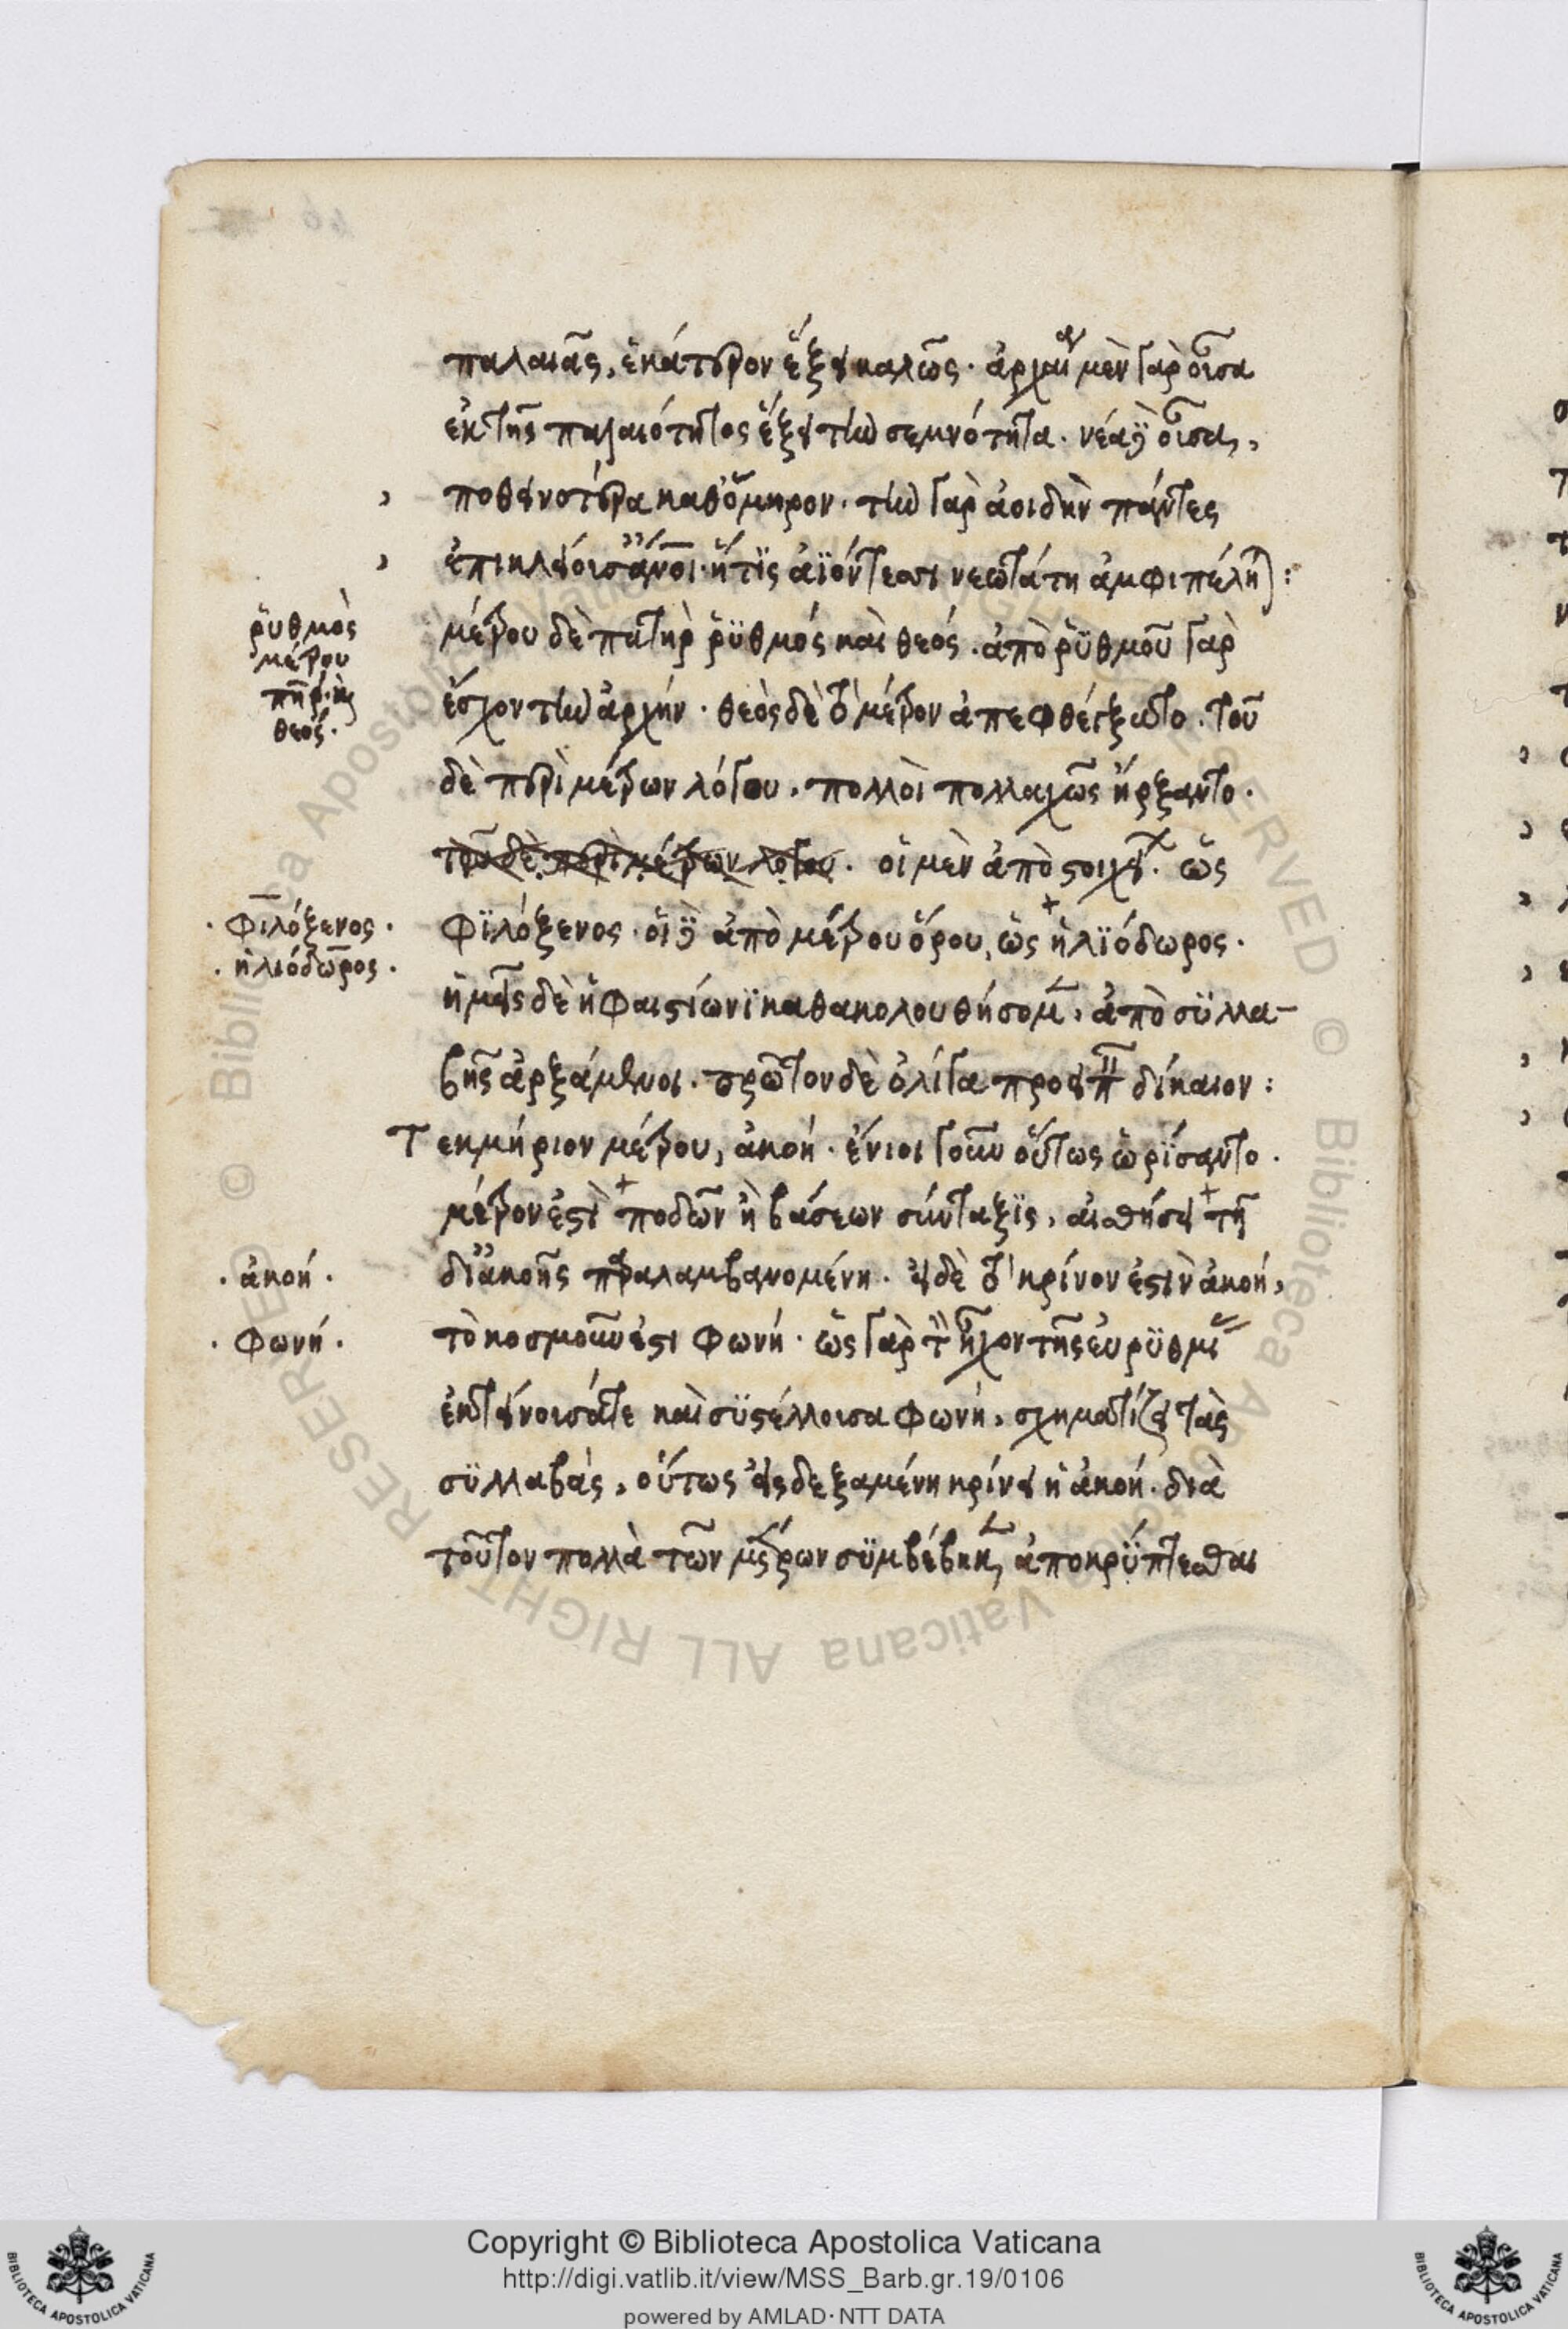 παλαιᾶς, ἑκάτερον ἕξει καλῶς· ἀρχαία μὲν γὰρ οὖσα
ἐκ τῆς παλαιότητος ἕξει τὴν σεμνότητα· νέα δὲ οὖσα,
ποθεινοτέρα καθ' ὅμηρον· τὴν γὰρ ἀοιδὴν πάντες
ἐπικλείουσ' ἄνοι· ἥτϊς ἀϊόντεσσι νεωτάτη ἀμφιπέληται:
μέτρου δὲ πατὴρ ῥϋθμός καὶ θεός· ἀπὸ ῥϋθμοῦ γὰρ
ἔσχον τὴν ἀρχήν· θεὸς δὲ τὸ μέτρον ἀπεφθέγξατο. τοῦ
δὲ περὶ μέτρων λόγου, πολλοὶ πολλαχῶς ἤρξαντο·
τοῦ δὲ περὶ μέτρων λόγου· οἱ μὲν ἀπὸ στοιχεί· ὡς
Φϊλόξενος· οἱ δὲ ἀπὸ μέτρου ὅρου, ὡς ἡλϊόδωρος·
ἡμεῖς δὲ ἡφαιστίωνϊ κατακολουθήσομ, ἀπὸ σϋλλα-
βῆς ἀρξάμενοι· πρῶτον δὲ ὀλίγα προειπ δίκαιον:
Τεκμήριον μέτρου, ἀκοή· ἔνιοι γοῦν οὕτως ὡρΐσαντο·
μέτρον ἐστὶ ποδῶν ἢ βάσεων σύνταξϊς, αἰσθήσει τῇ
δι' ἀκοῆς παραλαμβανομένη· εἰ δὲ τὸ κρίνον ἐστὶν ἀκοή,
τὸ κοσμοῦν ἐστι φωνή· ὡς γὰρ τ ἦχον τῆς εὐρϋθμί
ἐκτείνουσά τε καὶ σϋστέλλουσα φωνὴ, σχηματίζει τὰς
σϋλλαβὰς, οὕτως εἰσδεξαμένη κρίνει ἡ ἀκοή· διὰ
τοῦτον πολλὰ τῶν μέτρων σϋμβέβηκ, ἀποκρΰπτεσθαι
ῥυθμὸς
μέτρου
πηρ καὶ
θεός·
· Φιλόξενος ·
· ἡλιόδωρος ·
· ἀκοή ·
· φωνή ·
Copyright © Biblioteca Apostolica Vaticana
http://digi.vatlib.it/view/MSS_Barb.gr.19/0106
powered by AMLAD·NTT DATA
© Biblioteca Apostolica Vaticana ALL RIGHTS RESERVED
BIBLIOTECA APOSTOLICA VATICANA
BIBLIOTECA APOSTOLICA VATICANA